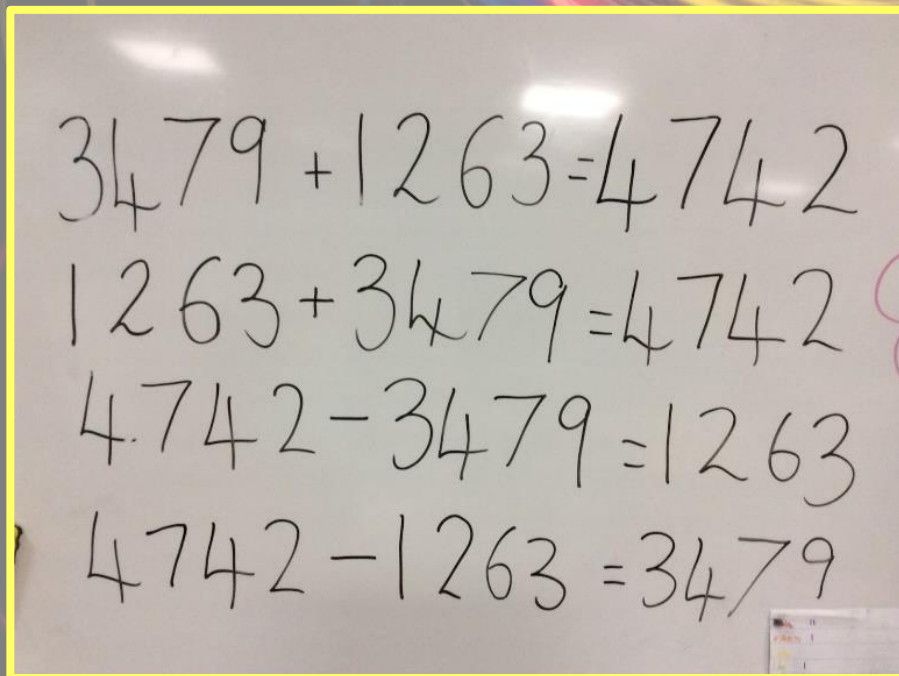 3479 + 1263 = 4742
1263 + 3479 = 4742
4742 - 3479 = 1263
4742 - 1263 = 3479